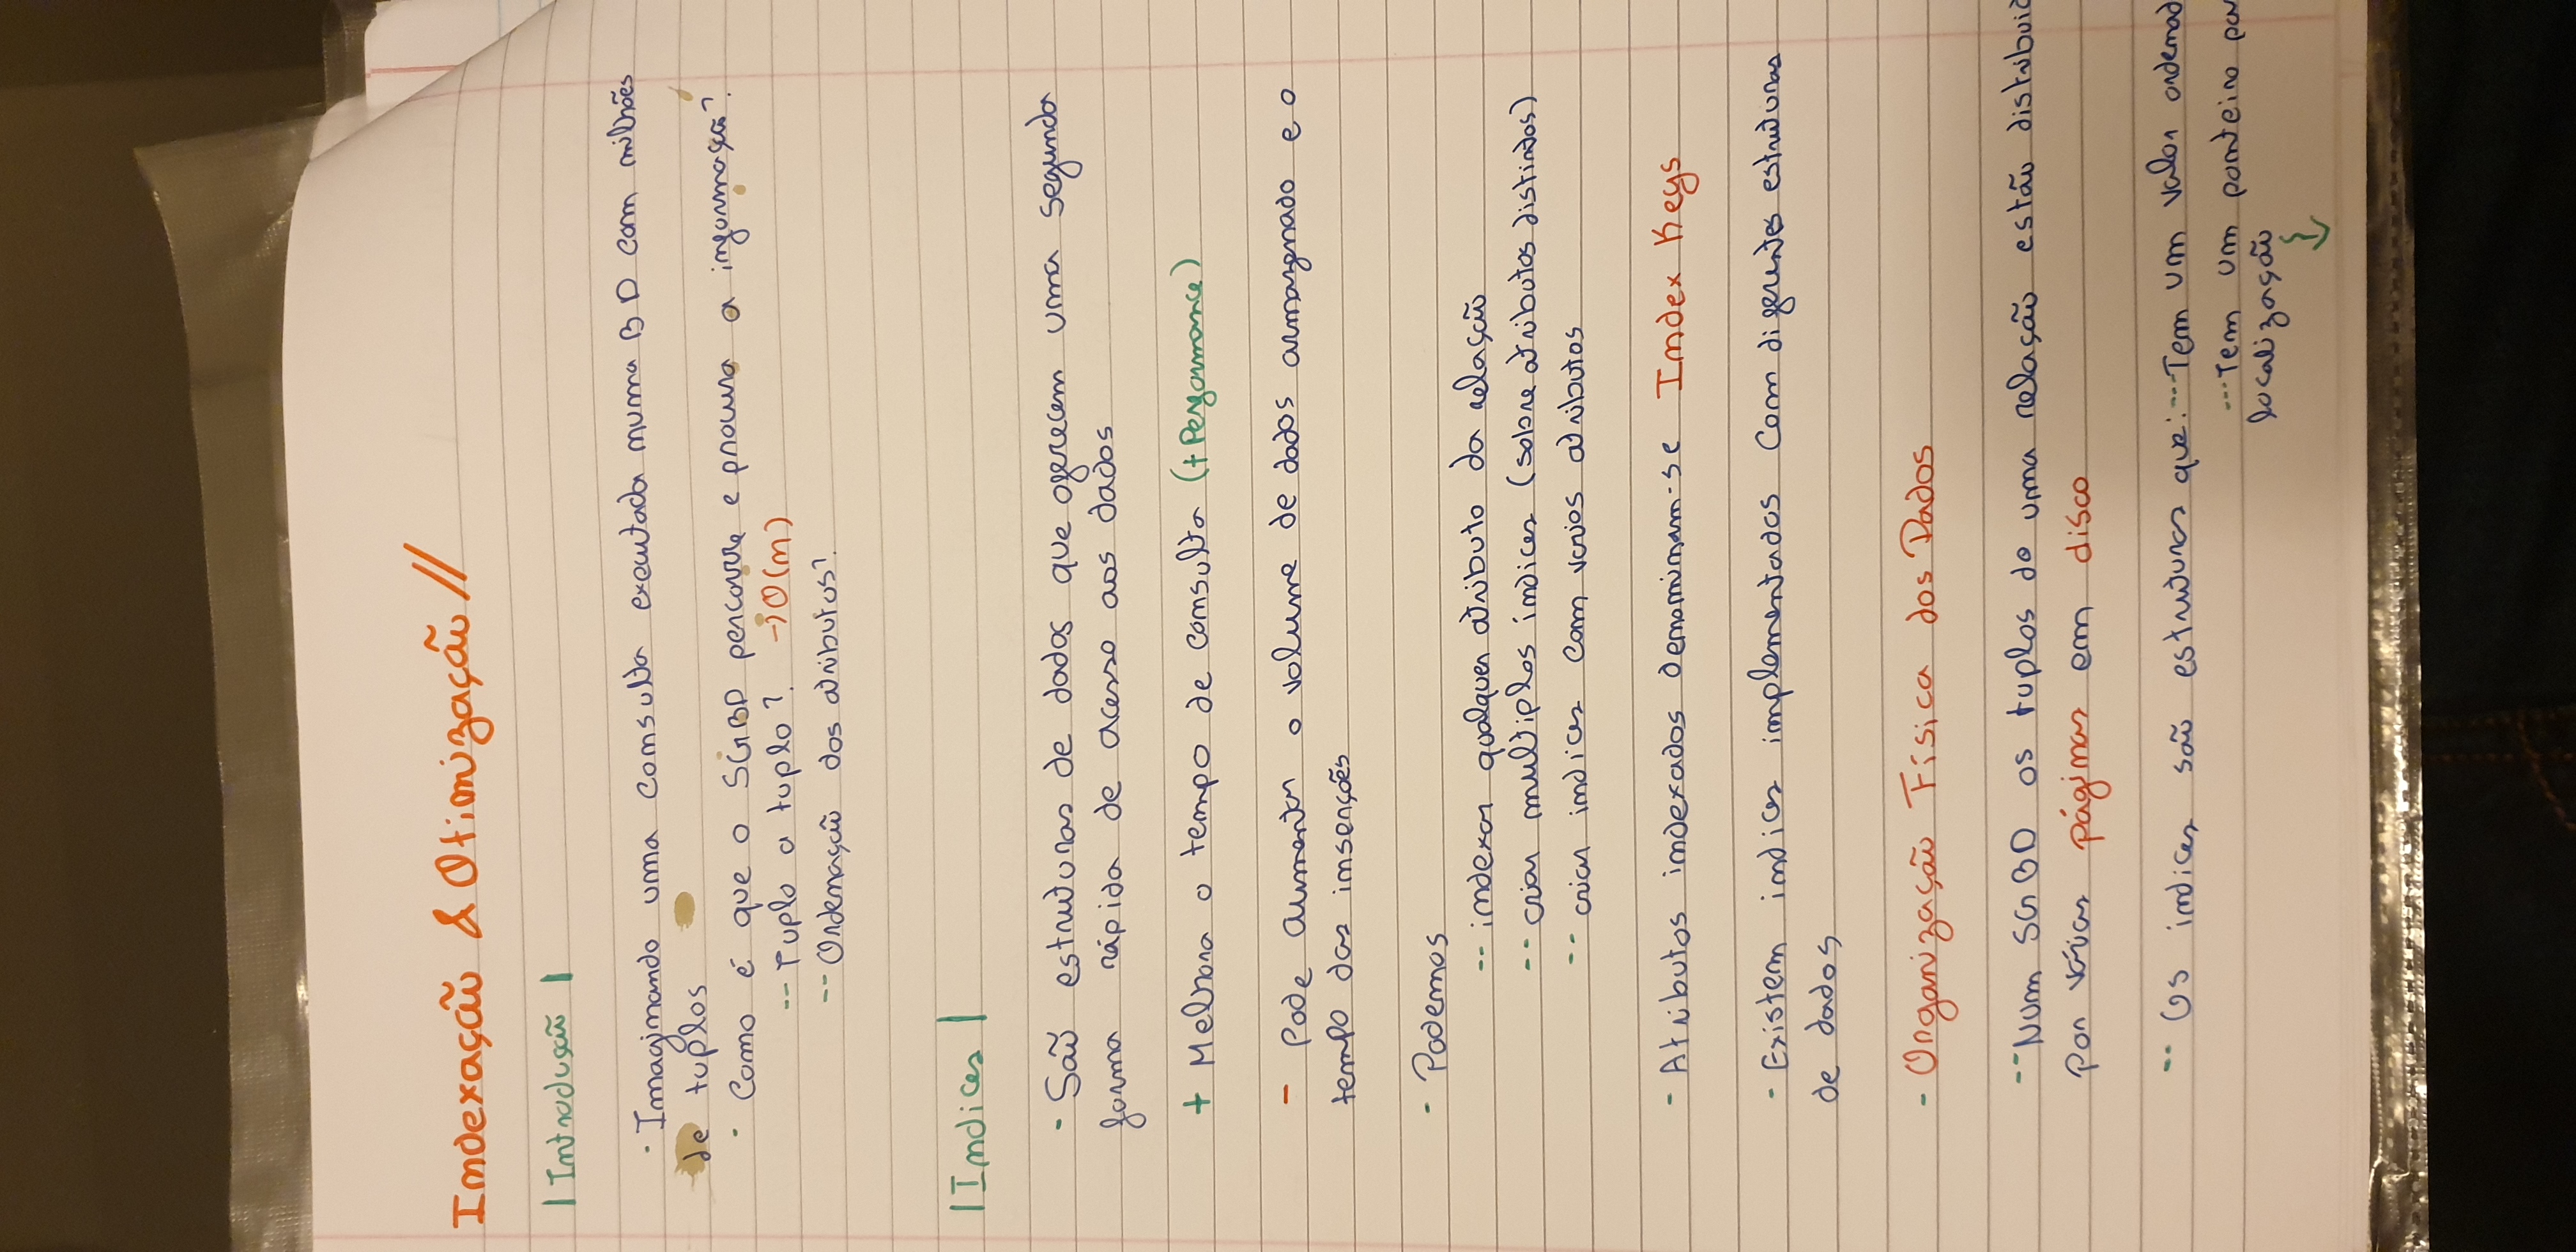 Indexação & Otimização //
| Introdução |
· Imaginando uma consulta executada numa BD com milhões
de tuplos
· Como é que o SGBD percorre e procura a informação?
-- Tuplo a tuplo? → O(n)
-- Ordenação dos atributos?
| Indices |
- São estruturas de dados que oferecem uma segunda
forma rápida de acesso aos dados
+ Melhora o tempo de consulta (+ Performance)
- Pode aumentar o volume de dados armazenado e o
tempo das inserções
- Podemos
-- indexar qualquer atributo da relação
-- criar multiplos índices (sobre atributos distintos)
-- criar indices com varios atributos
- Atributos indexados denominam-se Index Keys
- Existem indices implementados com diferentes estruturas
de dados
- Organização Física dos Dados
-- Num SGBD os tuplos de uma relação estão distribuid
por várias páginas em disco
-- Os indices são estruturas que: --- Tem um valor ordenad
--- Tem um ponteiro par
localização